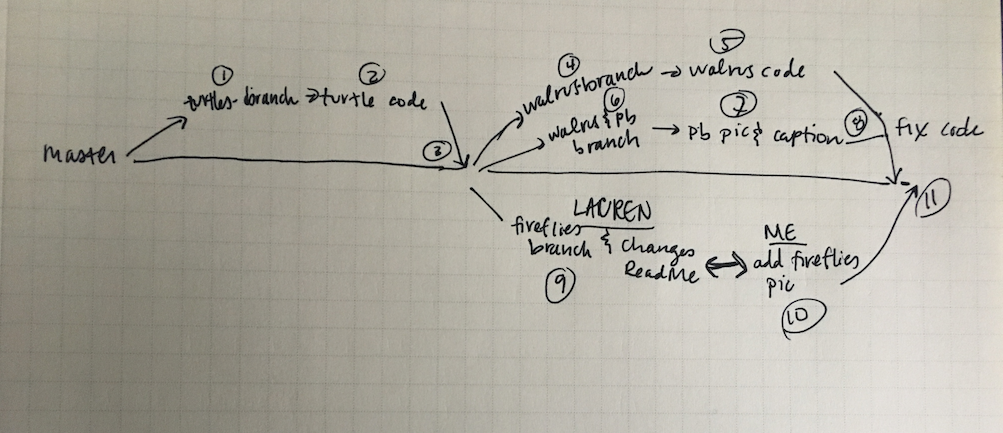 ① ②
turtles-branch → turtle code
③
master
④ ⑤
walrusbranch → walrus code
⑥ ⑦
walrus & pb
branch → pb pic & caption ⑧ fix code
⑪
LAUREN
fireflies
branch & changes
ReadMe
⑨
ME
add fireflies
pic
⑩